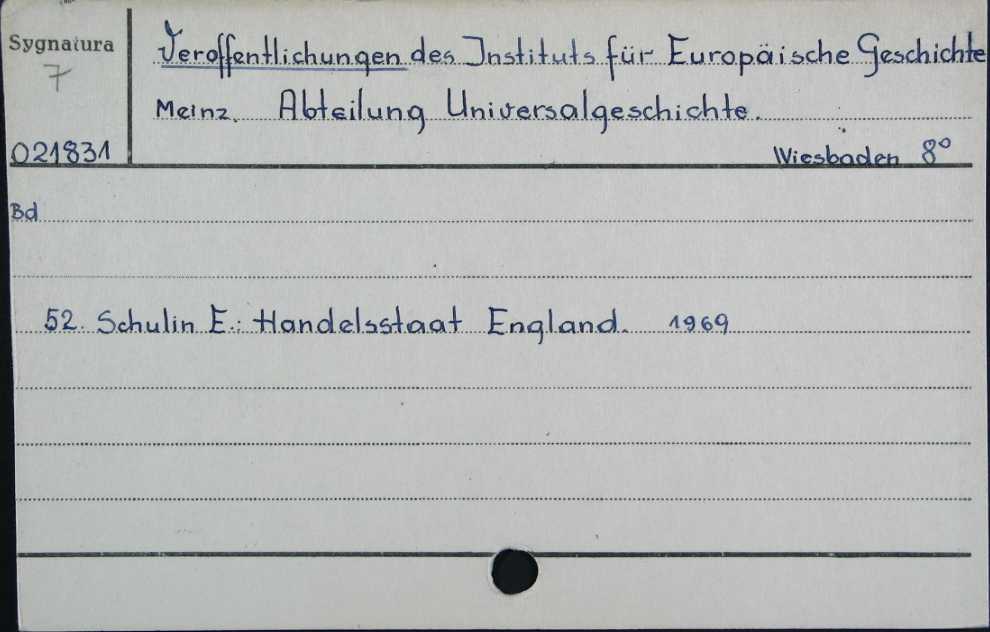 Sygnatura
7
021831
Veroffentlichungen des Instituts für Europäische Geschichte
Meinz. Abteilung Universalgeschichte.
Wiesbaden 8°
Bd
52. Schulin E.: Handelsstaat England. 1969